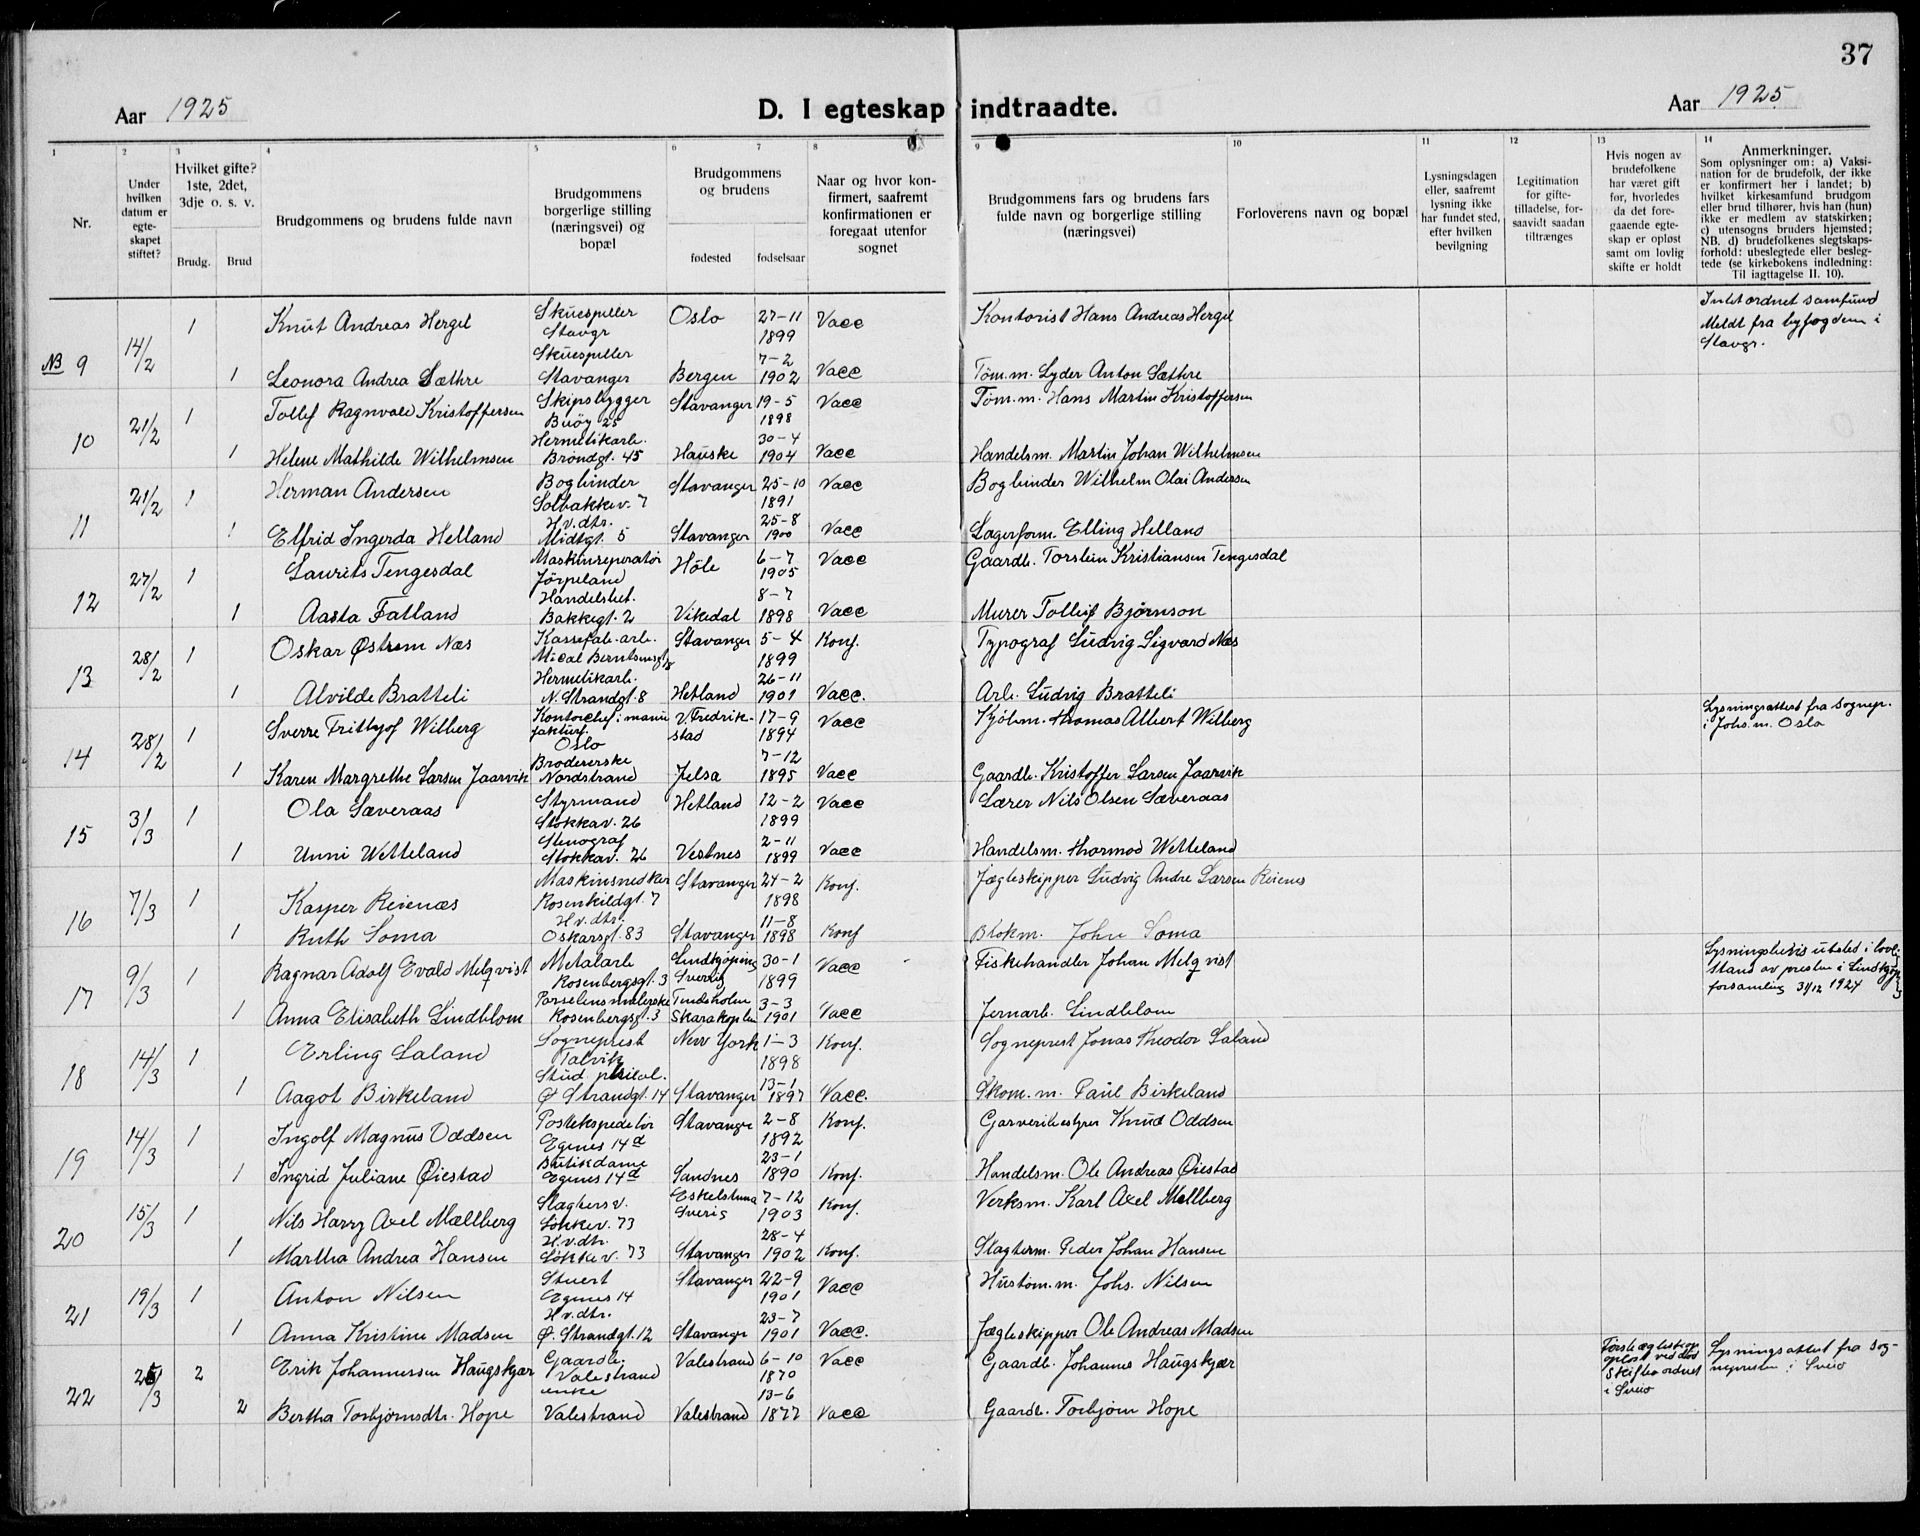 37
Aar 1925
D. I egteskap indtraadte.
Aar 1925.
1
2
3
4
5
6
7
8
9
10
11
12
13
14
Nr.
Under hvilken datum er egte-skapet stiftet?
Hvilket gifte? 1ste, 2det, 3dje o. s. v.
Brudg.
Brud
Brudgommens og brudens fulde navn
Brudgommens borgerlige stilling (næringsvei) og bopæl
Brudgommens og brudens
fødested
fødselsaar
Naar og hvor kon-firmert, saafremt konfirmationen er foregaat utenfor sognet
Brudgommens fars og brudens fars fulde navn og borgerlige stilling (næringsvei)
Forloverens navn og bopæl
Lysningsdagen eller, saafremt lysning ikke har fundet sted, efter hvilken bevilgning
Legitimation for gifte-tilladelse, for-saavidt saadan tiltrænges
Hvis nogen av brudefolkene har været gift før, hvorledes da det fore-gaaende egte-skap er opløst samt om lovlig skifte er holdt
Anmerkninger.
Som oplysninger om: a) Vaksi-nation for de brudefolk, der ikke er konfirmert her i landet; b) hvilket kirkesamfund brudgom eller brud tilhører, hvis han (hun) ikke er medlem av statskirken; c) utensogns bruders hjemsted; NB. d) brudefolkenes slegtskaps-forhold: ubeslegtede eller besleg-tede (se kirkebokens indledning: Til iagttagelse II. 10).
NB 9 14/2 1 Knut Andreas Hergel Skuespiller Stavgr Oslo 27-11 1899 Vacc Kontorist Hans Andreas Hergel Intet ordnet samfund Meldt fra byfogden i Stavgr.
1 Leonora Andrea Sæthre Skuespiller Stavanger Bergen 7-2 1902 Vacc Tøm.m. Lyder Anton Sæthre
10 21/2 1 Tollef Ragnvald Kristoffersen Skipsbygger Buøy 25 Stavanger 19-5 1898 Vacc Tøm.m. Hans Martin Kristoffersen
1 Helene Mathilde Wilhelmsen Hermetikarb. Brøndgt. 45 Hauske 30-4 1904 Vacc Handelsm. Martin Johan Wilhelmsen
11 21/2 1 Herman Andersen Bogbinder Solbakkev. 7 Stavanger 25-10 1891 Vacc Bogbinder Wilhelm Olai Andersen
1 Elfrid Ingerda Helland H.v.dtr. Midtgt. 5 Stavanger 25-8 1900 Vacc Lagerform. Elling Helland
12 27/2 1 Laurits Tengesdal Maskinreparatør Jørpeland Høle 6-7 1905 Vacc Gaardb. Torstein Kristiansen Tengesdal
1 Aasta Fatland Handelsbet. Bakkegt. 2 Vikedal 8-7 1898 Vacc Murer Tolleif Bjørnson
13 28/2 1 Oskar Østrem Næs Kassefab.arb. Mical Berntsensgt 8 Stavanger 5-4 1899 Konf. Typograf Ludvig Sigvard Næs
1 Alvilde Bratteli Hermetikarb. N. Strandgt. 8 Hetland 26-11 1901 Vacc. Arb. Ludvig Bratteli
14 28/2 1 Sverre Frithjof Wilberg Kontorchef i manufaktur. Oslo V. Fredrikstad 17-9 1894 Vacc Kjøbm. Thomas Albert Wilberg Lysningsattest fra sognepr. i Johs. m. Oslo
1 Karen Margrethe Larsen Jaarvik Brodererske Nordstrand Jelsa 7-12 1895 Vacc Gaardb. Kristoffer Larsen Jaarvik
15 3/3 1 Ola Sæveraas Styrmand Stokkav. 26 Hetland 12-2 1899 Vacc Lærer Nils Olsen Sæveraas
1 Unni Wetteland Stenograf Stokkav. 26 Vestnes 2-11 1899 Vacc Handelsm. Thormod Wetteland
16 7/3 1 Kasper Reienæs Maskinsnedker Rosenkildgt. 7 Stavanger 24-2 1898 Konf. Jægteskipper Ludvig Andre Larsen Reienes
1 Ruth Soma H.v.dtr. Oskarsgt. 83 Stavanger 11-8 1898 Konf Blokm. John Soma
17 9/3 1 Ragnar Adolf Evald Melqvist Metalarb Rosenbergsgt. 3 Lindkjøping Sverig 30-1 1899 Vacc Fiskehandler Johan Melqvist Lysningsbevis utsted i lovl. stand av presten i Lindkjøping forsamling 31/12 1924
1 Anna Elisabeth Lindblom Porselensmalerske Rosenbergsgt. 3 3-3 1901 Vacc Jernarb. Lindblom
18 14/3 1 Erling Laland Sogneprest Talvik New York 1-3 1898 Konf. Sogneprest Jonas Theodor Laland
1 Aagot Birkeland Stud philol. Ø Strandgt. 14 Stavanger 13-1 1897 Vacc. Skom. m. Paul Birkeland
19 14/3 1 Ingolf Magnus Oddsen Postekspeditør Egenes 14d Stavanger 2-8 1892 Konf. Garveribestyrer Knud Oddsen
1 Ingrid Juliane Øiestad Butikdame Egenes 14d Sandnes 23-1 1890 Konf. Handelsm. Ole Andreas Øiestad
20 15/3 1 Nils Harry Axel Mællberg Slagtersv. Løkkev. 73 Eskelstuna Sverig 7-12 1903 Konf. Verksm. Karl Axel Mællberg
1 Martha Andrea Hansen H.v.dtr. Løkkev. 73 Stavanger 28-4 1902 Konf. Slagterm. Peder Johan Hansen
21 19/3 1 Anton Nilsen Stuert Egenes 14 Stavanger 22-9 1901 Vacc Hustøm.m. Johs. Nilsen
1 Anna Kristine Madsen H.v.dtr. Ø. Strandgt. 12 Stavanger 23-7 1901 Vacc. Jægteskipper Ole Andreas Madsen
22 25/3 2 Erik Johannessen Haugskjær Gaardb. Valestrand Valestrand 6-10 1870 Vacc Gaardb. Johannes Haugskjær Første egteskap opløst ved død Skifte ordnet i Sveio Lysningsattest fra sognepresten i Sveio
2 Bertha Torbjørnsdtr. Hope enke Valestrand Valestrand 13-6 1877 Vacc Gaardb. Torbjørn Hope